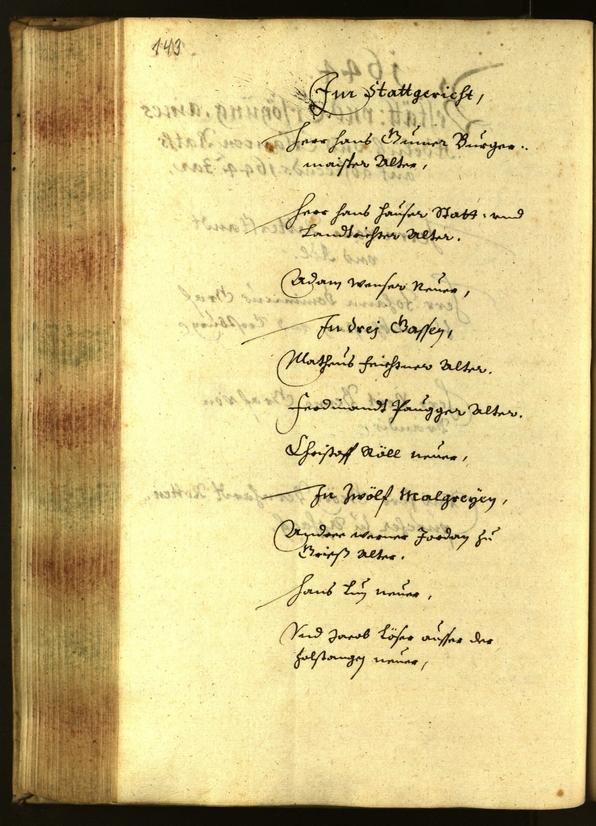 143.
Im Stattgericht,
Herr Hans Gumer Burger-
maister Alter,
Herr Hans Hauser Statt: und
Landtrichter Alter.
Adam Wenser Neuer,
In drej Gassen,
Matheus Feichtner Alter.
Ferdinandt Paugger Alter.
Christoff Röll neuer,
In Zwölf Malgreyen,
Andree Werner Jordan zu
Grieß Alter.
Hans Luz neuer,
Und Jacob Löser ausser der
Holstangen neuer,